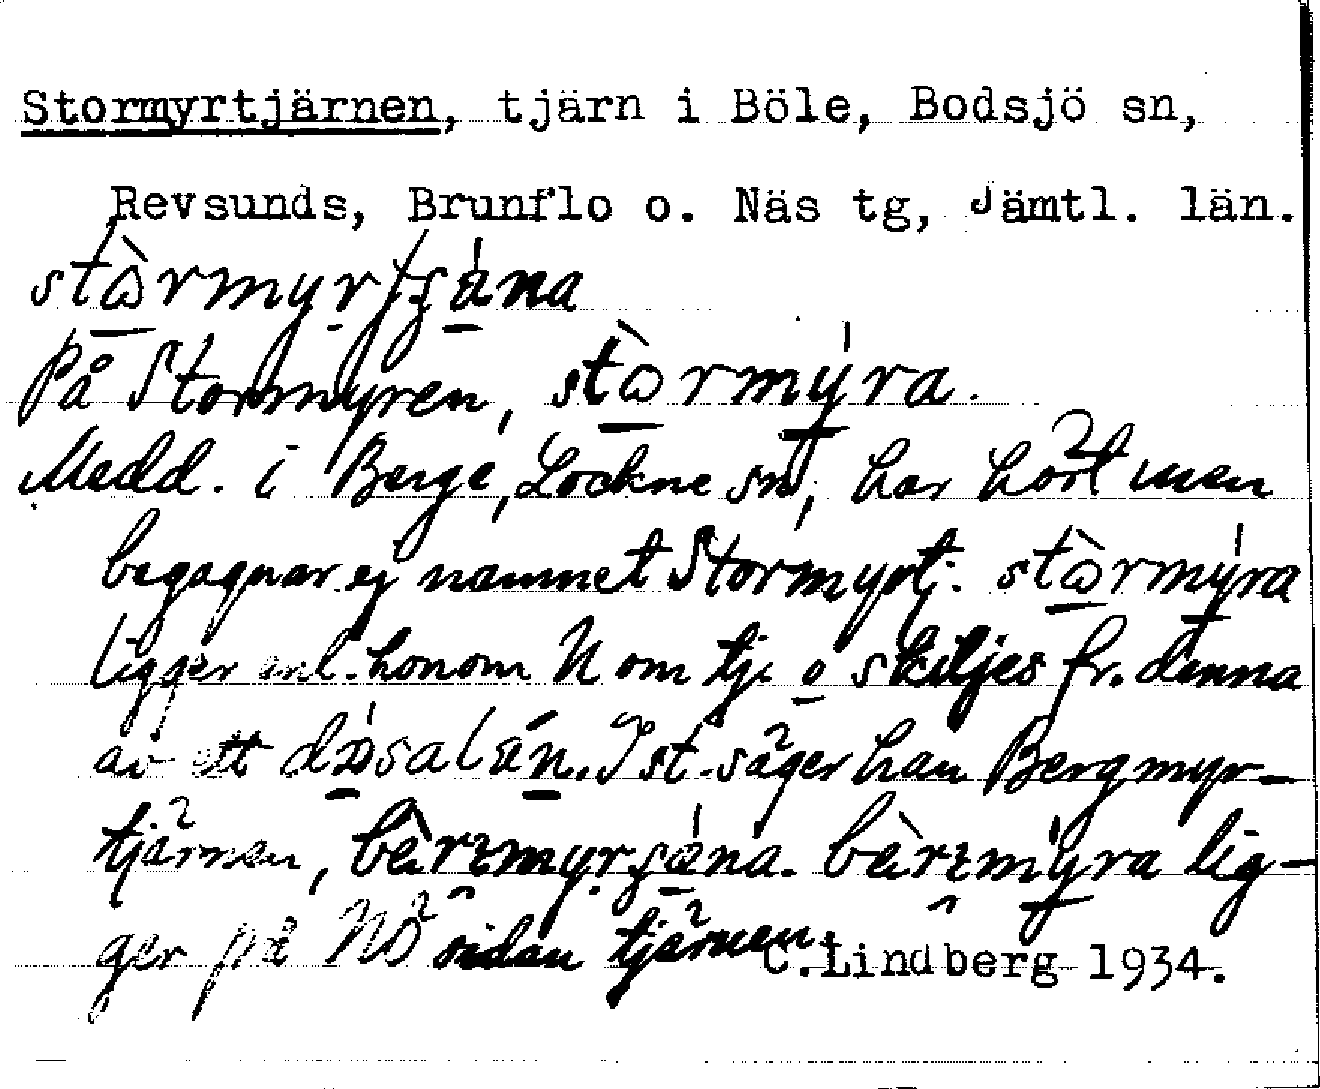 Stormyrtjärnen, tjärn i Böle, Bodsjö sn,
Revsunds, Brunflo o. Näs tg, Jämtl. län.
På Stormyren,
Medd. i Berge, Lockne sn, har hört men
begagnar ej namnet Stormyrtj.
ligger enl. honom N om tj. o skiljes fr. denna
av ett I st. säger han Bergmyr-
tjärnen, lig-
ger på NÖ sidan tjärnen.
C.Lindberg 1934.